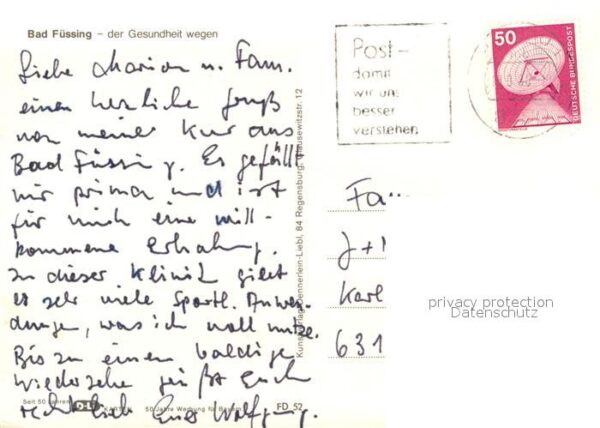 Bad Füssing – der Gesundheit wegen
Liebe Marion u. Fam.
einen herzliche Gruß
von meiner Kur aus
Bad Füssing. Es gefällt
mir prima und ist
für mich eine will-
kommene Erholung.
In dieser Klinik giebt
es sehr viele Sportl. Anwen-
dungen, was ich voll nutze.
Bis zu einem baldige
Wiedersehe grüßt Euch
recht lieb Euer Wolfgang.
Seit 50 Jahren
KARTEN 50 Jahre Werbung für Bayern
FD 52
Kunstverlag Dennerlein-Liebl, 84 Regensburg, Clausewitzstr. 12
Post-
damit
wir uns
besser
verstehen
50
DEUTSCHE BUNDESPOST
Fa
J+
Karl
631
privacy protection
Datenschutz